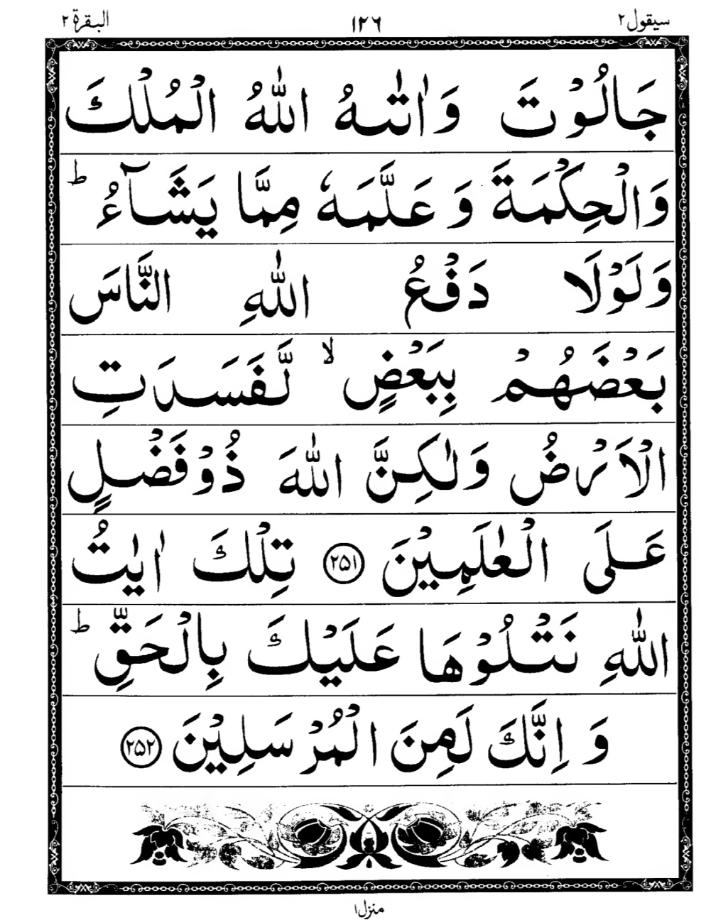 سيقول ٢ ١٢٦ البقرة ٢
جَالُوْتَ وَاٰتٰىهُ اللّٰهُ الْمُلْكَ
وَالْحِكْمَةَ وَ عَلَّمَهٗ مِمَّا يَشَآءُ ؕ
وَلَوْلَا دَفْعُ اللّٰهِ النَّاسَ
بَعْضَهُمْ بِبَعْضٍ ۙ لَّفَسَدَتِ
الْاَرْضُ وَلٰكِنَّ اللّٰهَ ذُوْ فَضْلٍ
عَلَى الْعٰلَمِيْنَ ﴿٢٥١﴾ تِلْكَ اٰيٰتُ
اللّٰهِ نَتْلُوْهَا عَلَيْكَ بِالْحَقِّ ؕ
وَ اِنَّكَ لَمِنَ الْمُرْسَلِيْنَ ﴿٢٥٢﴾
منزل ١